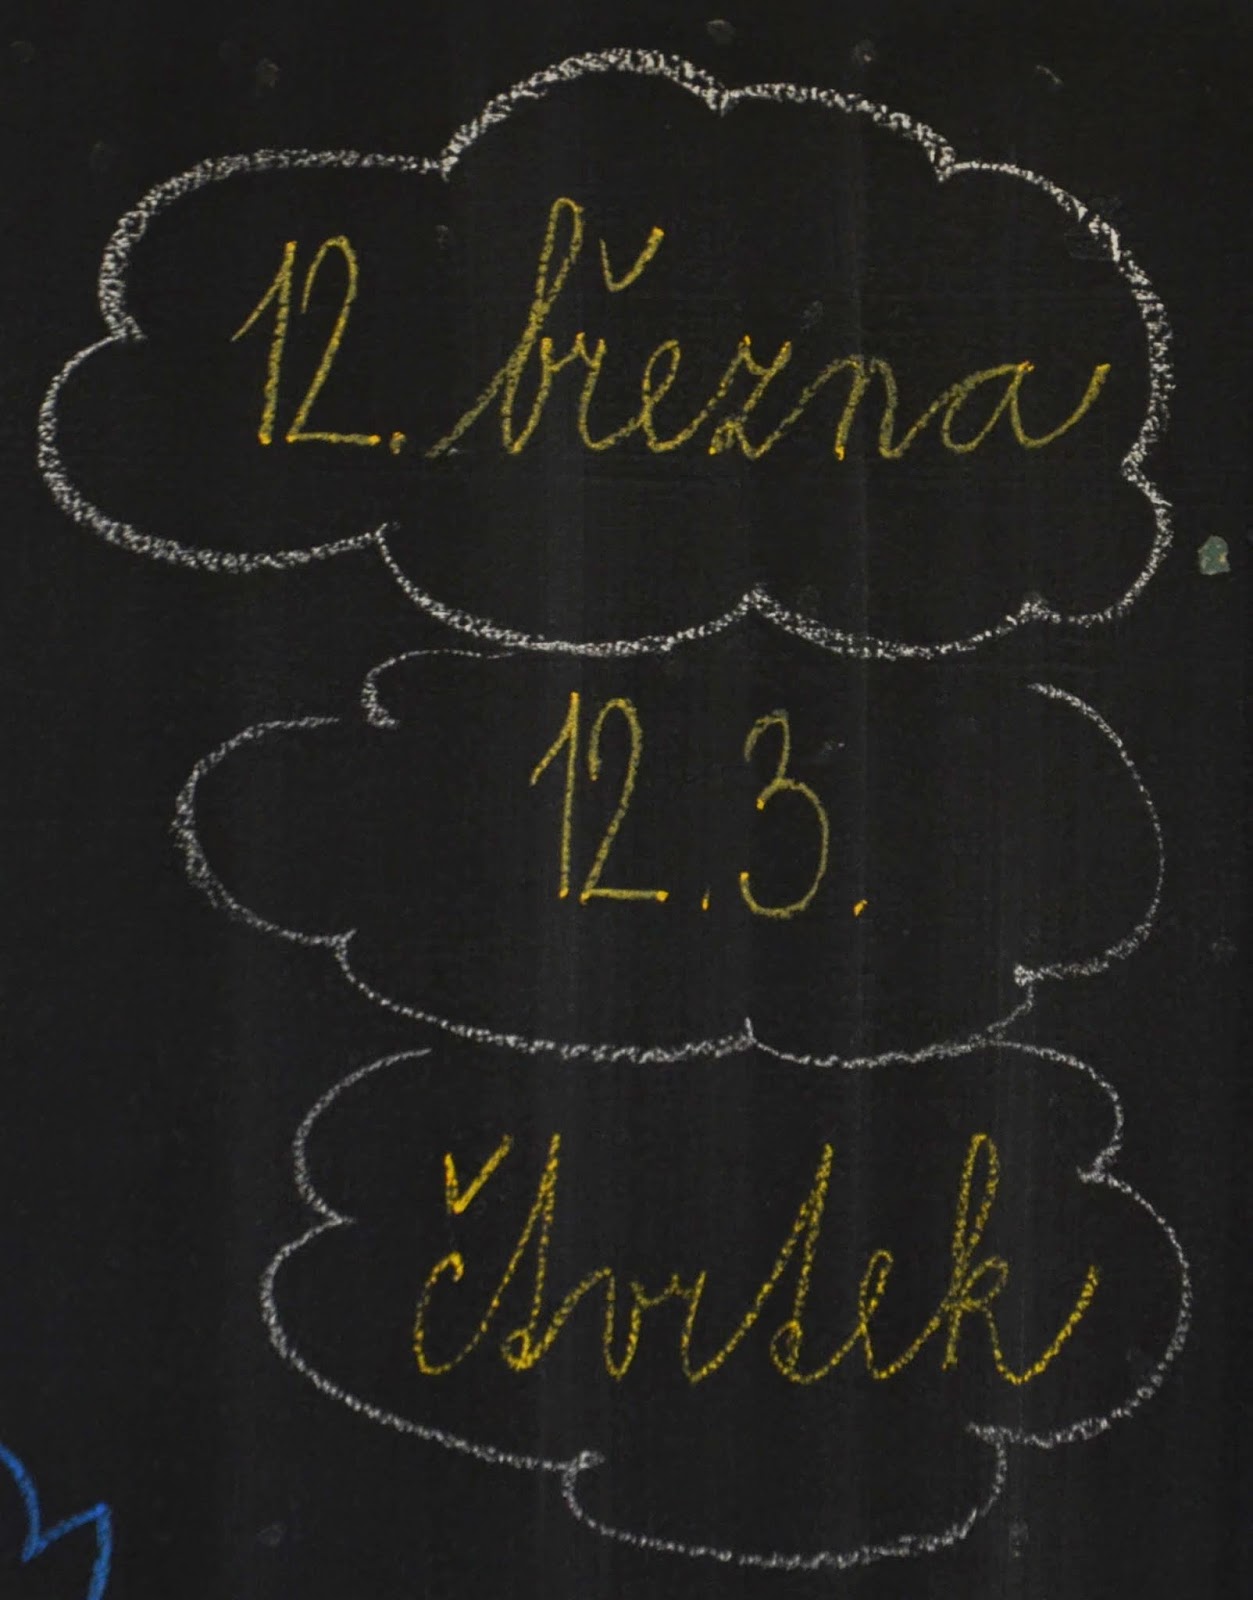 12. března
12.3.
čtvrtek